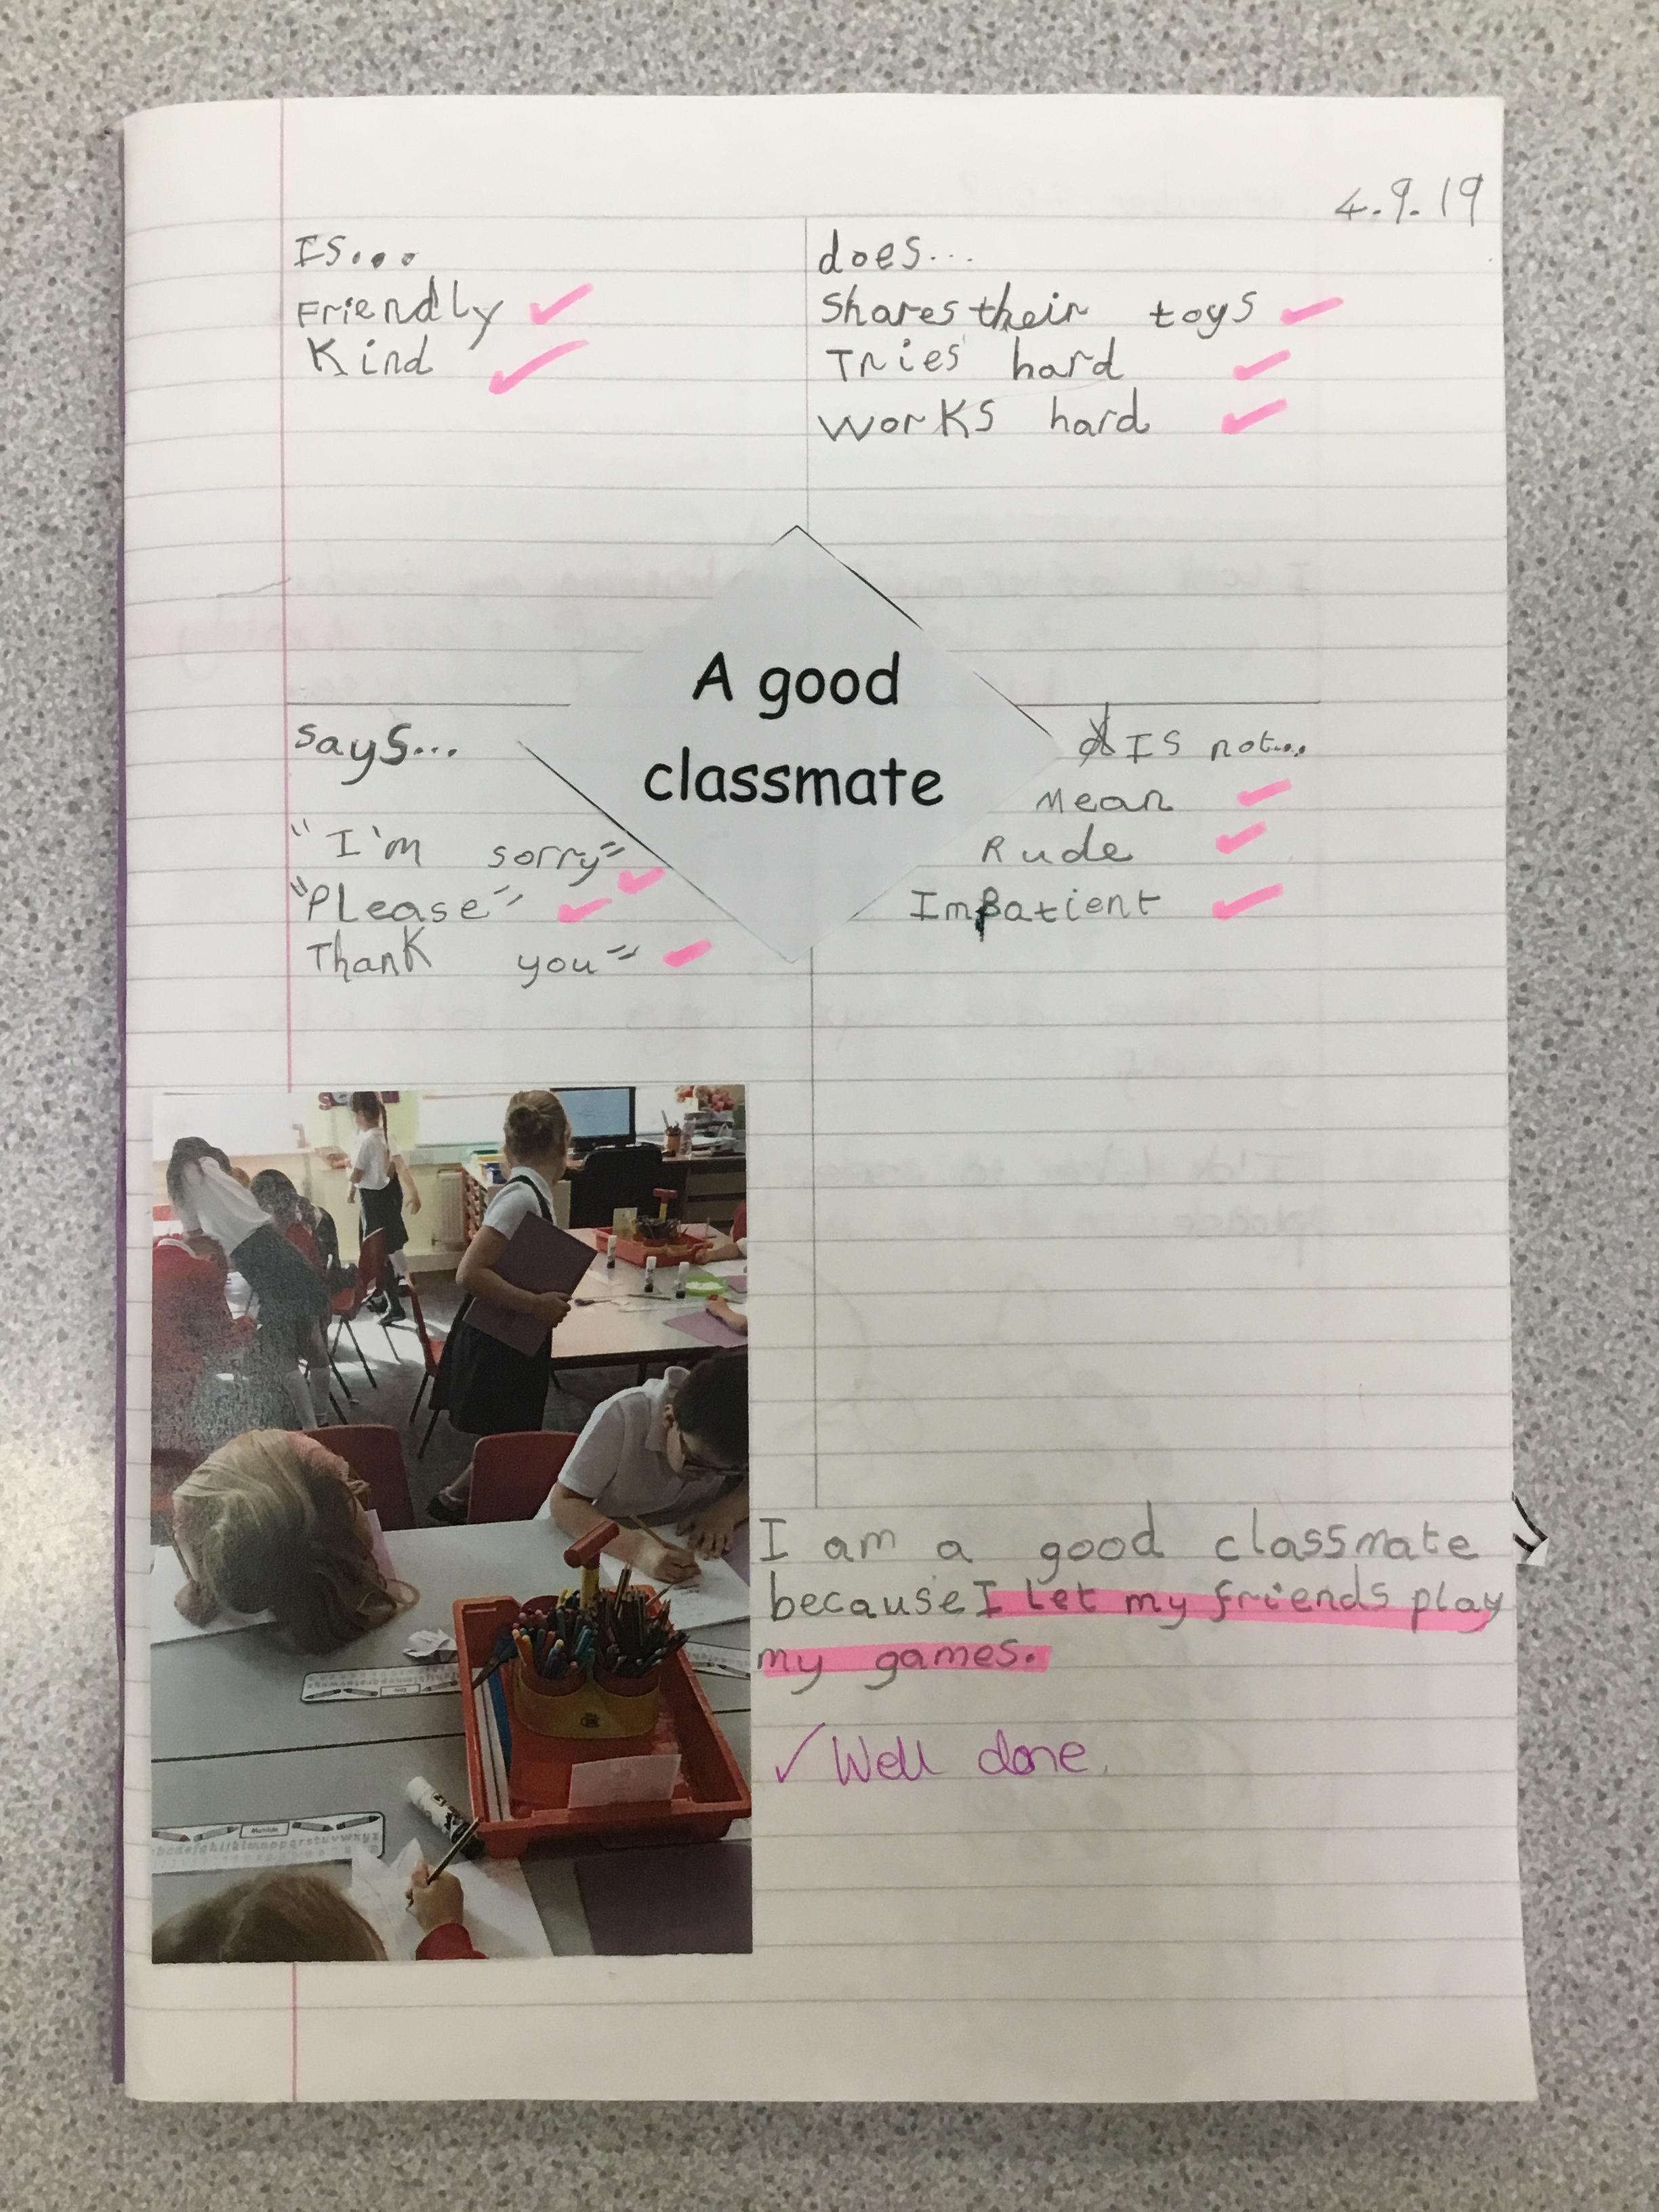 4.9.19
Is...
Friendly
Kind
does...
Shares their toys
Tries hard
Works hard
A good
classmate
says...
"I'm sorry"
"Please"
Thank you"
Is not...
Mean
Rude
Impatient
I am a good classmate
because I let my friends play
my games.
✓ Well done.